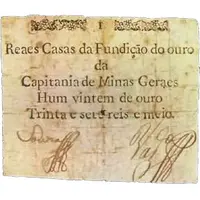 1
Reaes Casas da Fundição do ouro
da
Capitania de Minas Geraes
Hum vintem de ouro
Trinta e sete reis e meio.